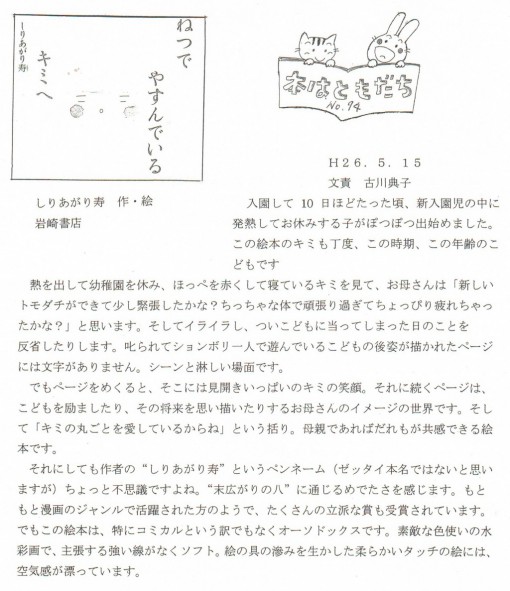 ねつで
やすんでいる
キミへ
しりあがり寿
本はともだち
No.94
H26.5.15
文責 古川典子
しりあがり寿 作・絵
岩崎書店
入園して 10 日ほどたった頃、新入園児の中に
発熱してお休みする子がぽつぽつ出始めました。
この絵本のキミも丁度、この時期、この年齢のこ
どもです
熱を出して幼稚園を休み、ほっぺを赤くして寝ているキミを見て、お母さんは「新しい
トモダチができて少し緊張したかな?ちっちゃな体で頑張り過ぎてちょっぴり疲れちゃっ
たかな?」と思います。そしてイライラし、ついこどもに当ってしまった日のことを
反省したりします。叱られてションボリ一人で遊んでいるこどもの後姿が描かれたページ
には文字がありません。シーンと淋しい場面です。
でもページをめくると、そこには見開きいっぱいのキミの笑顔。それに続くページは、
こどもを励ましたり、その将来を思い描いたりするお母さんのイメージの世界です。そし
て「キミの丸ごとを愛しているからね」という括り。母親であればだれもが共感できる絵
本です。
それにしても作者の“しりあがり寿”というペンネーム(ゼッタイ本名ではないと思い
ますが)ちょっと不思議ですよね。“末広がりの八”に通じるめでたさを感じます。もと
もと漫画のジャンルで活躍された方のようで、たくさんの立派な賞も受賞されています。
でもこの絵本は、特にコミカルという訳でもなくオーソドックスです。素敵な色使いの水
彩画で、主張する強い線がなくソフト。絵の具の滲みを生かした柔らかいタッチの絵には、
空気感が漂っています。